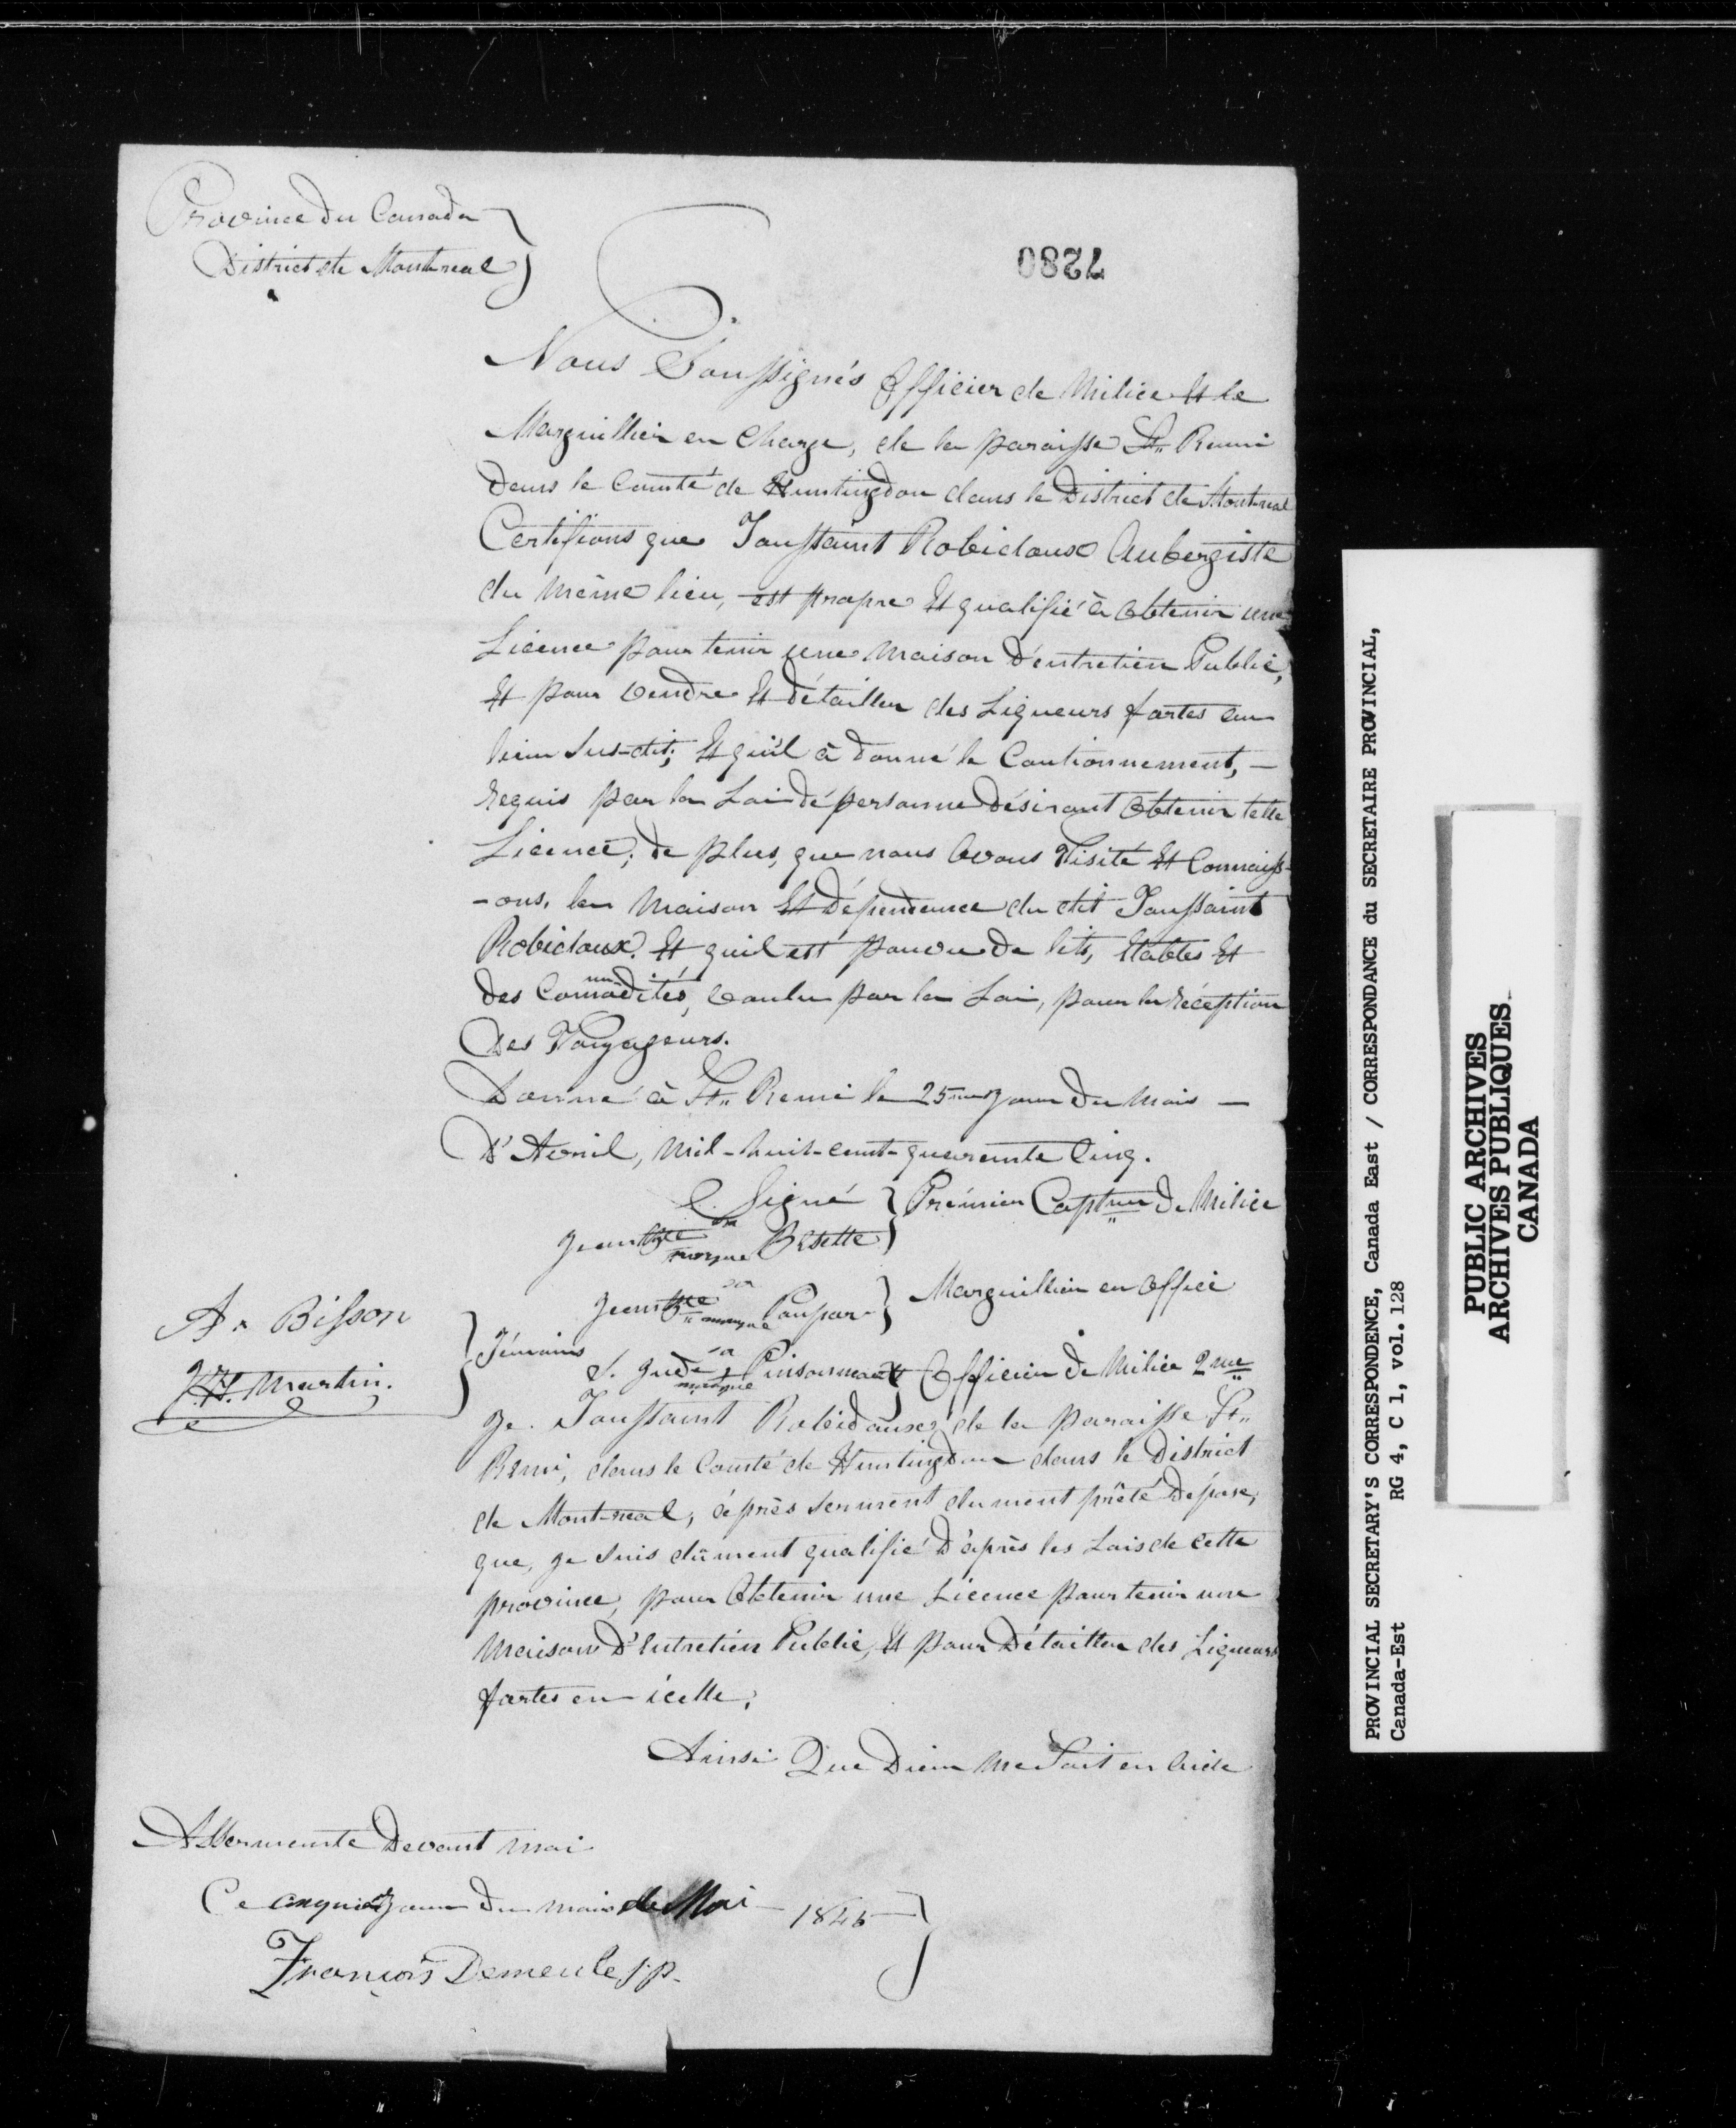 Province du Canada
District de Montreal
7280
Nous Soussignés Officier de Milice Et le
Marguillier en Charge, de la paroisse St. Remi
dans le Comté de Huntingdon dans le District de Montreal
Certifions que Toussaint Robidoux Aubergiste
du même lieu, est propre Et qualifié à Obtenir une
Licence pour tenir une Maison d'entretien Public,
Et pour Vendre Et détailler des Liqueurs fortes au
lieu Sus-dit; Et qu'il à donné le Cautionnement, —
Requis par la Loi dé personne désirant Obtenir telle
Licence; de plus, que nous Avons Visité Et Connaiss-
-ons, la Maison Et Dépendence du dit Toussaint
Robidoux. Et quil est pouvu de lits, Etables Et
des Commodités, Voulu par la Loi, pour la Réception
Des Voyageurs.
Donné à St. Remi le 25me Jour du Mois —
D'Avril, Mil-huit-cent-quarente Cinq.
Signé } Prémier Captne de Milice
Jean Bte sa marque Bésette
Jean Bte sa marque Poupar } Marguillier en Office
A. Bisson
J. H. Martin.
Témoins
sa marque Pinsonneault Officier de Milice 2me
Je Toussaint Robidoux de la paroisse St.
Remi, dans le Comté de Huntingdon dans le District
de Mont-real, àprès serment dument prêté Dépose,
que, Je suis dûment qualifié D'àprès les Lois de Cette
province, pour Obtenir une Licence pour tenir une
Maison D'Entretien Public, Et pour Détailler des Liqueurs
fortes en icelle;
Ainsi Que Dieu Me Soit en Aide
Assermenté Devant Moi
Ce cinquiè Jour du mois de Mai 1845
François Demeule J.P.
PROVINCIAL SECRETARY'S CORRESPONDENCE, Canada East / CORRESPONDANCE du SECRETAIRE PROVINCIAL,
Canada-Est RG 4, C 1, vol. 128
PUBLIC ARCHIVES
ARCHIVES PUBLIQUES
CANADA